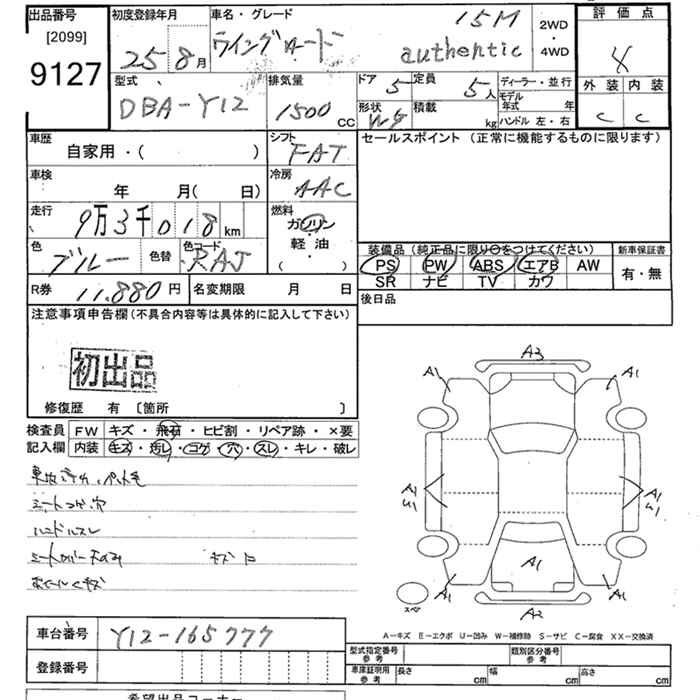 出品番号
[2099]
9127
初度登録年月
25 8月
車名・グレード
ウイングロード
15M
authentic
2WD
・
4WD
評価点
4
外装 内装
C C
型式
DBA-Y12
排気量
1500 CC
ドア 5
定員 5人
ディーラー・並行
形状 WG
積載 kg
モデル年式 年
ハンドル 左・右
車歴
自家用・( )
シフト
FAT
セールスポイント (正常に機能するものに限ります)
車検
年 月( 日)
冷房
AAC
走行
9万3千018km
燃料
ガソリン
・
軽油
・
( )
色 ブルー
色替
色コード RAJ
装備品 (純正品に限り○をつけてください)
PS PW ABS エアB AW
SR ナビ TV カワ
新車保証書
有・無
R券 11,880円
名変期限 月 日
後日品
注意事項申告欄(不具合内容等は具体的に記入して下さい)
初出品
修復歴 有 [箇所 ]
検査員 FW キズ・飛石・ヒビ割・リペア跡・×要
記入欄 内装 キズ・汚レ・コゲ・穴・スレ・キレ・破レ
シートコゲ穴
ハンドルスレ
シートカバー
ホイールキズ
A3
A1 A1
A1 A1
U1 U1
A1
A1 A1
A2
スペア
A-キズ E-エクボ U-凹み W-補修跡 S-サビ C-腐食 XX-交換済
車台番号 Y12-165777
登録番号
型式指定番号 参考
類別区分番号 参考
車庫証明用 参考
長さ cm 幅 cm 高さ cm
希望出品コーナー